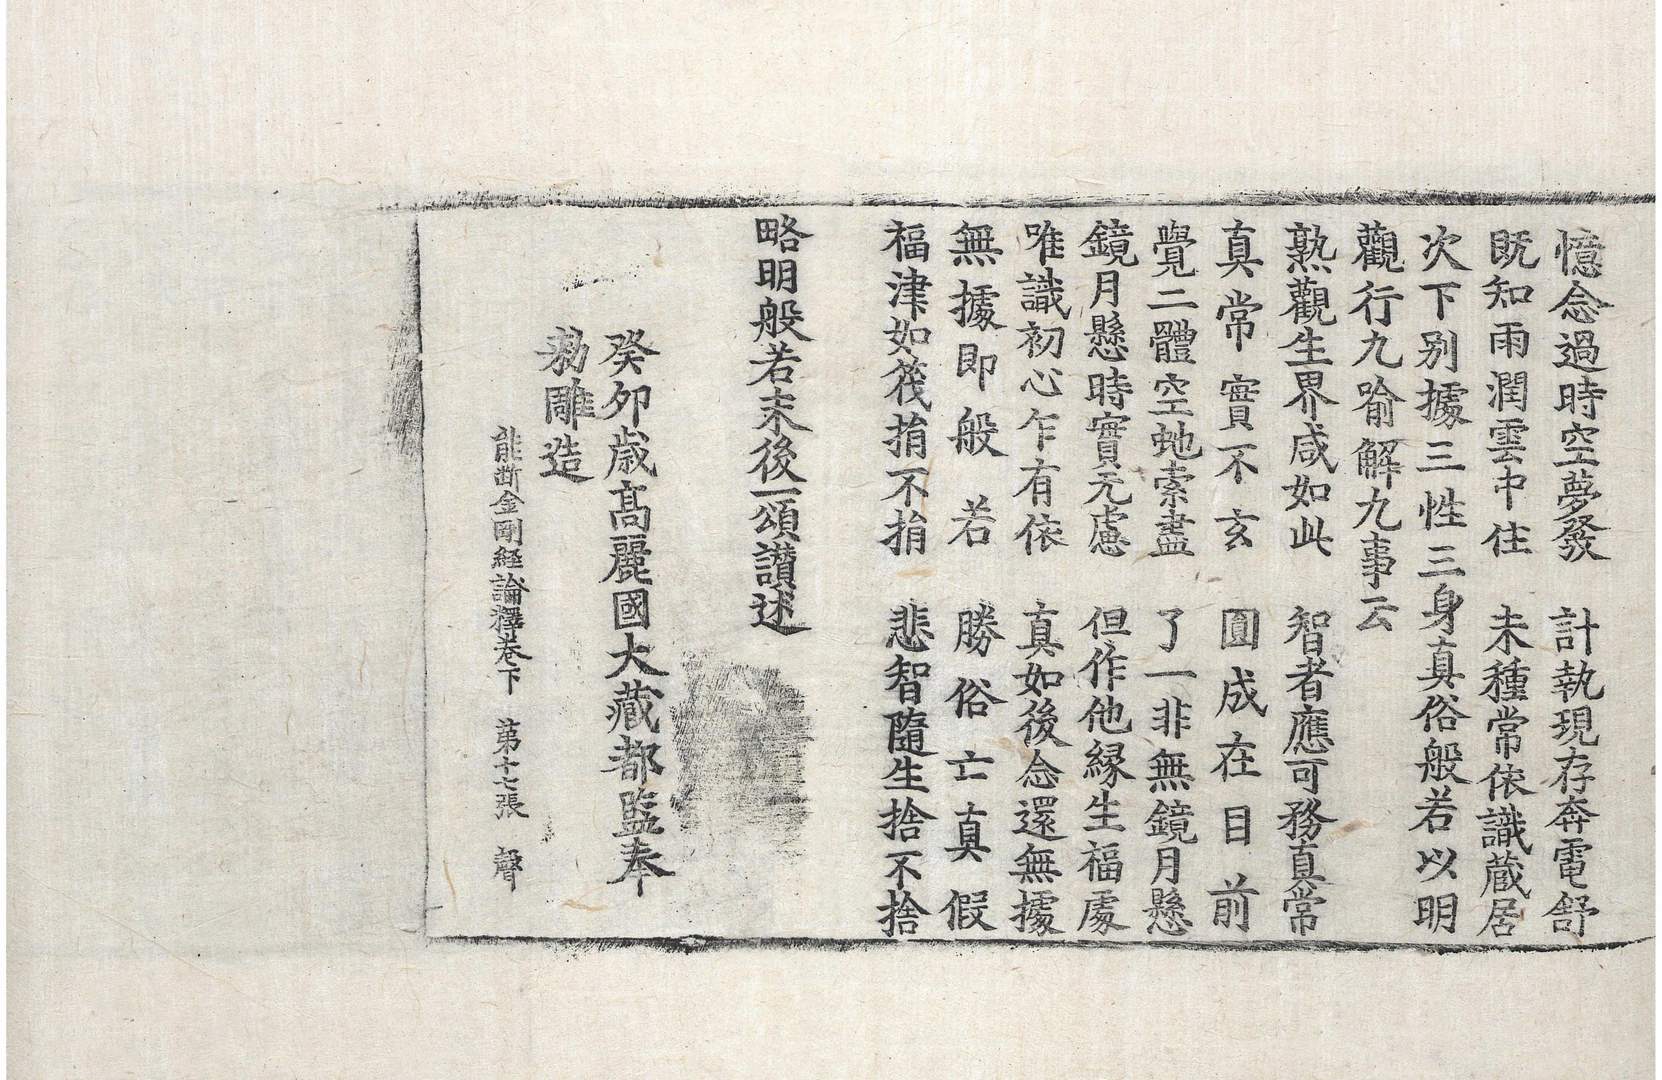 憶念過時空夢發　計執現存奔電舒
既知雨潤雲中住　未種常依識蔵居
次下別據三性三身真俗般若以明
觀行九喻解九事云
熟觀生界咸如此　智者應可務真常
真常實不玄　圓成在目前
覺二體空虵索盡　了一非無鏡月懸
鏡月懸時實无慮　但作他縁生福處
唯識初心乍有依　真如後念還無據
無據即般若　勝俗亡真假
福津如筏捎不捎　悲智隨生捨不捨
略明般若末後一頌讃述
癸夘歳髙麗國大藏都監奉
勑雕造
能断金剛經論釋卷下　第十七張　聲